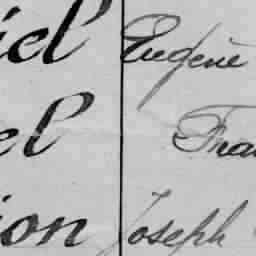 iel Eugène
el Fran
ion Joseph